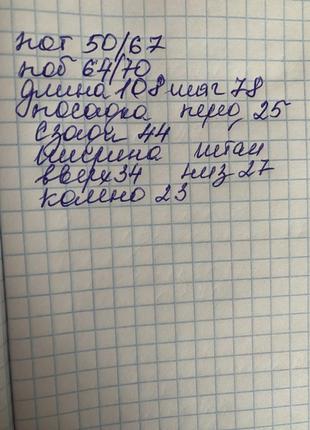 пот 50/67
поб 64/70
длина 108 шаг 78
посадка перед 25
сзади 44
ширина штан
вверх 34 низ 27
колено 23